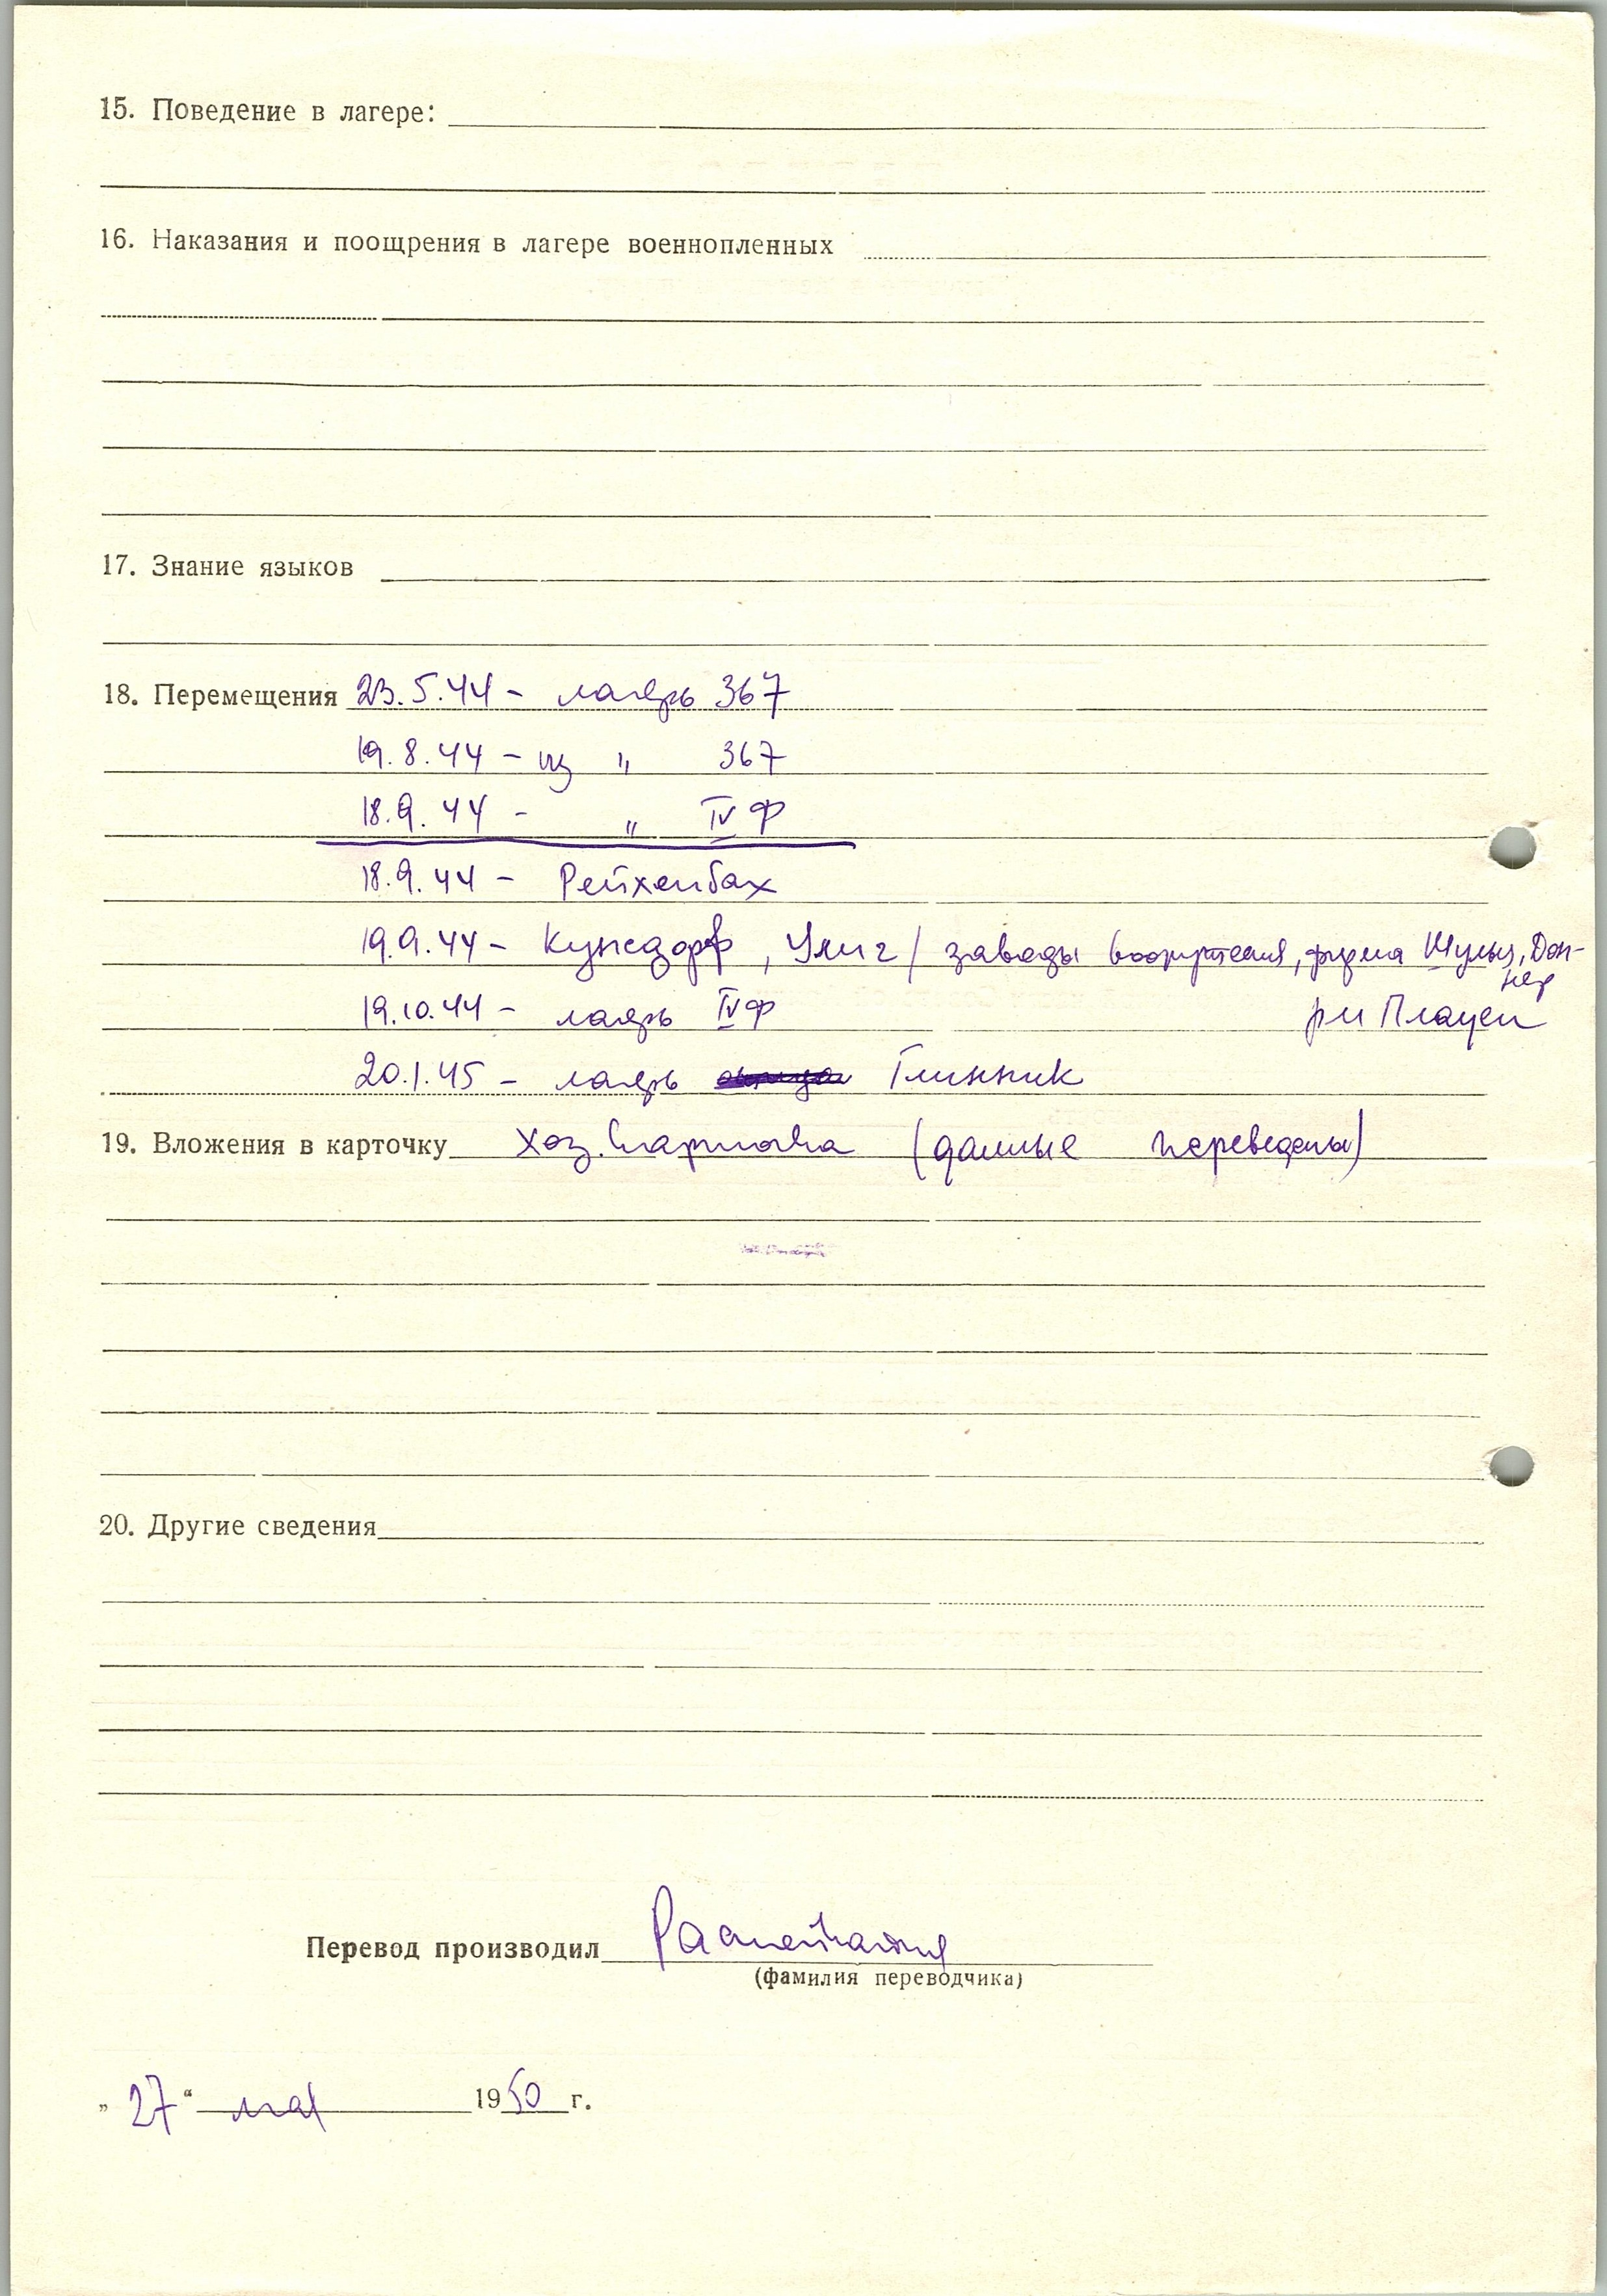 15. Поведение в лагере:
16. Наказания и поощрения в лагере военнопленных
17. Знание языков
18. Перемещения 23.5.44 - лагерь 367
19.8.44 - из " 367
18.9.44 - " IV Ф
18.9.44 - Рейхенбах
19.9.44 - Кунсдорф, / заводы вооружения, фирма Шульц, Дон-
нер
19.10.44 - лагерь IV Ф рн Плауен
20.1.45 - лагерь Глинник
19. Вложения в карточку хоз. (данные переведены)
20. Другие сведения
Перевод производил
(фамилия переводчика)
„ 27 “ мая 1950 г.